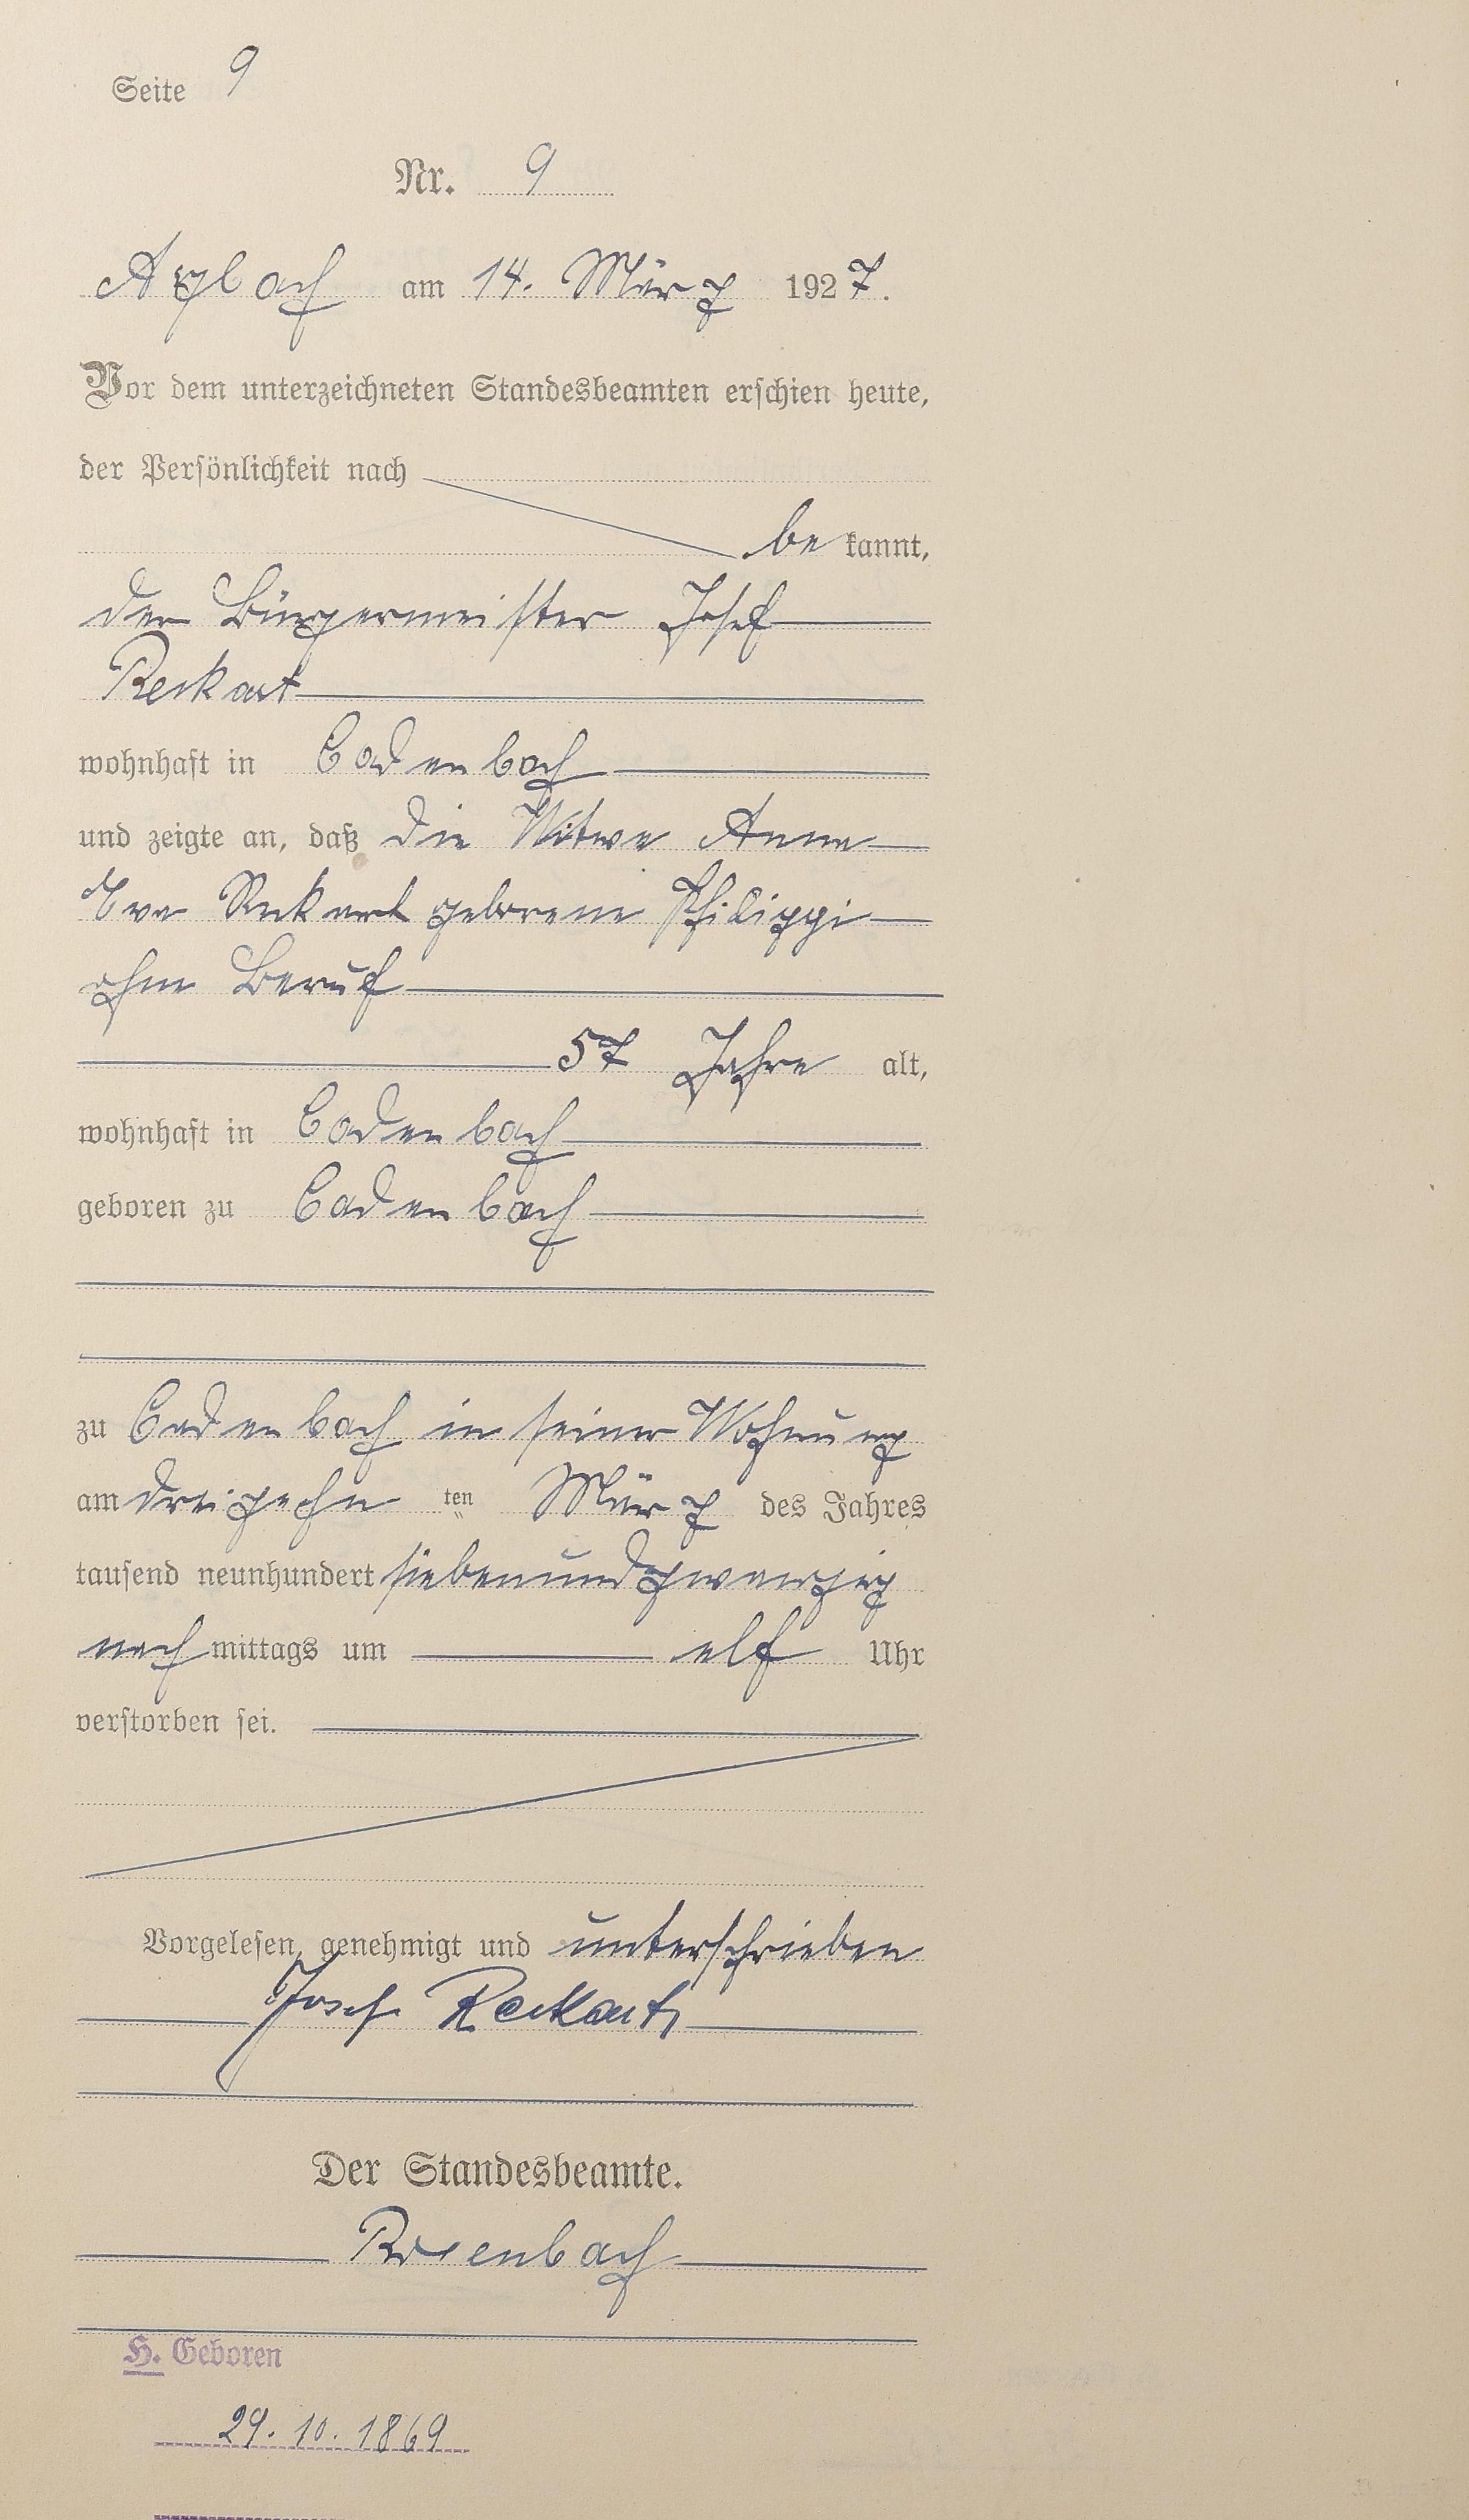 Seite 9
Nr. 9
Arzbach am 14. März 1927.
Vor dem unterzeichneten Standesbeamten erschien heute,
der Persönlichkeit nach
be kannt,
der Bürgermeister Josef
Reckart
wohnhaft in Cadenbach
und zeigte an, daß die Witwe Anna
Eva Reckart geborene Philippi
ohne Beruf
57 Jahre alt,
wohnhaft in Cadenbach
geboren zu Cadenbach
zu Cadenbach in seiner Wohnung
am dreizehn ten März des Jahres
tausend neunhundert siebenundzwanzig
nach mittags um elf Uhr
verstorben sei.
Vorgelesen, genehmigt und unterschrieben
Josef Reckart
Der Standesbeamte.
Rosenbach
H. Geboren
29. 10. 1869